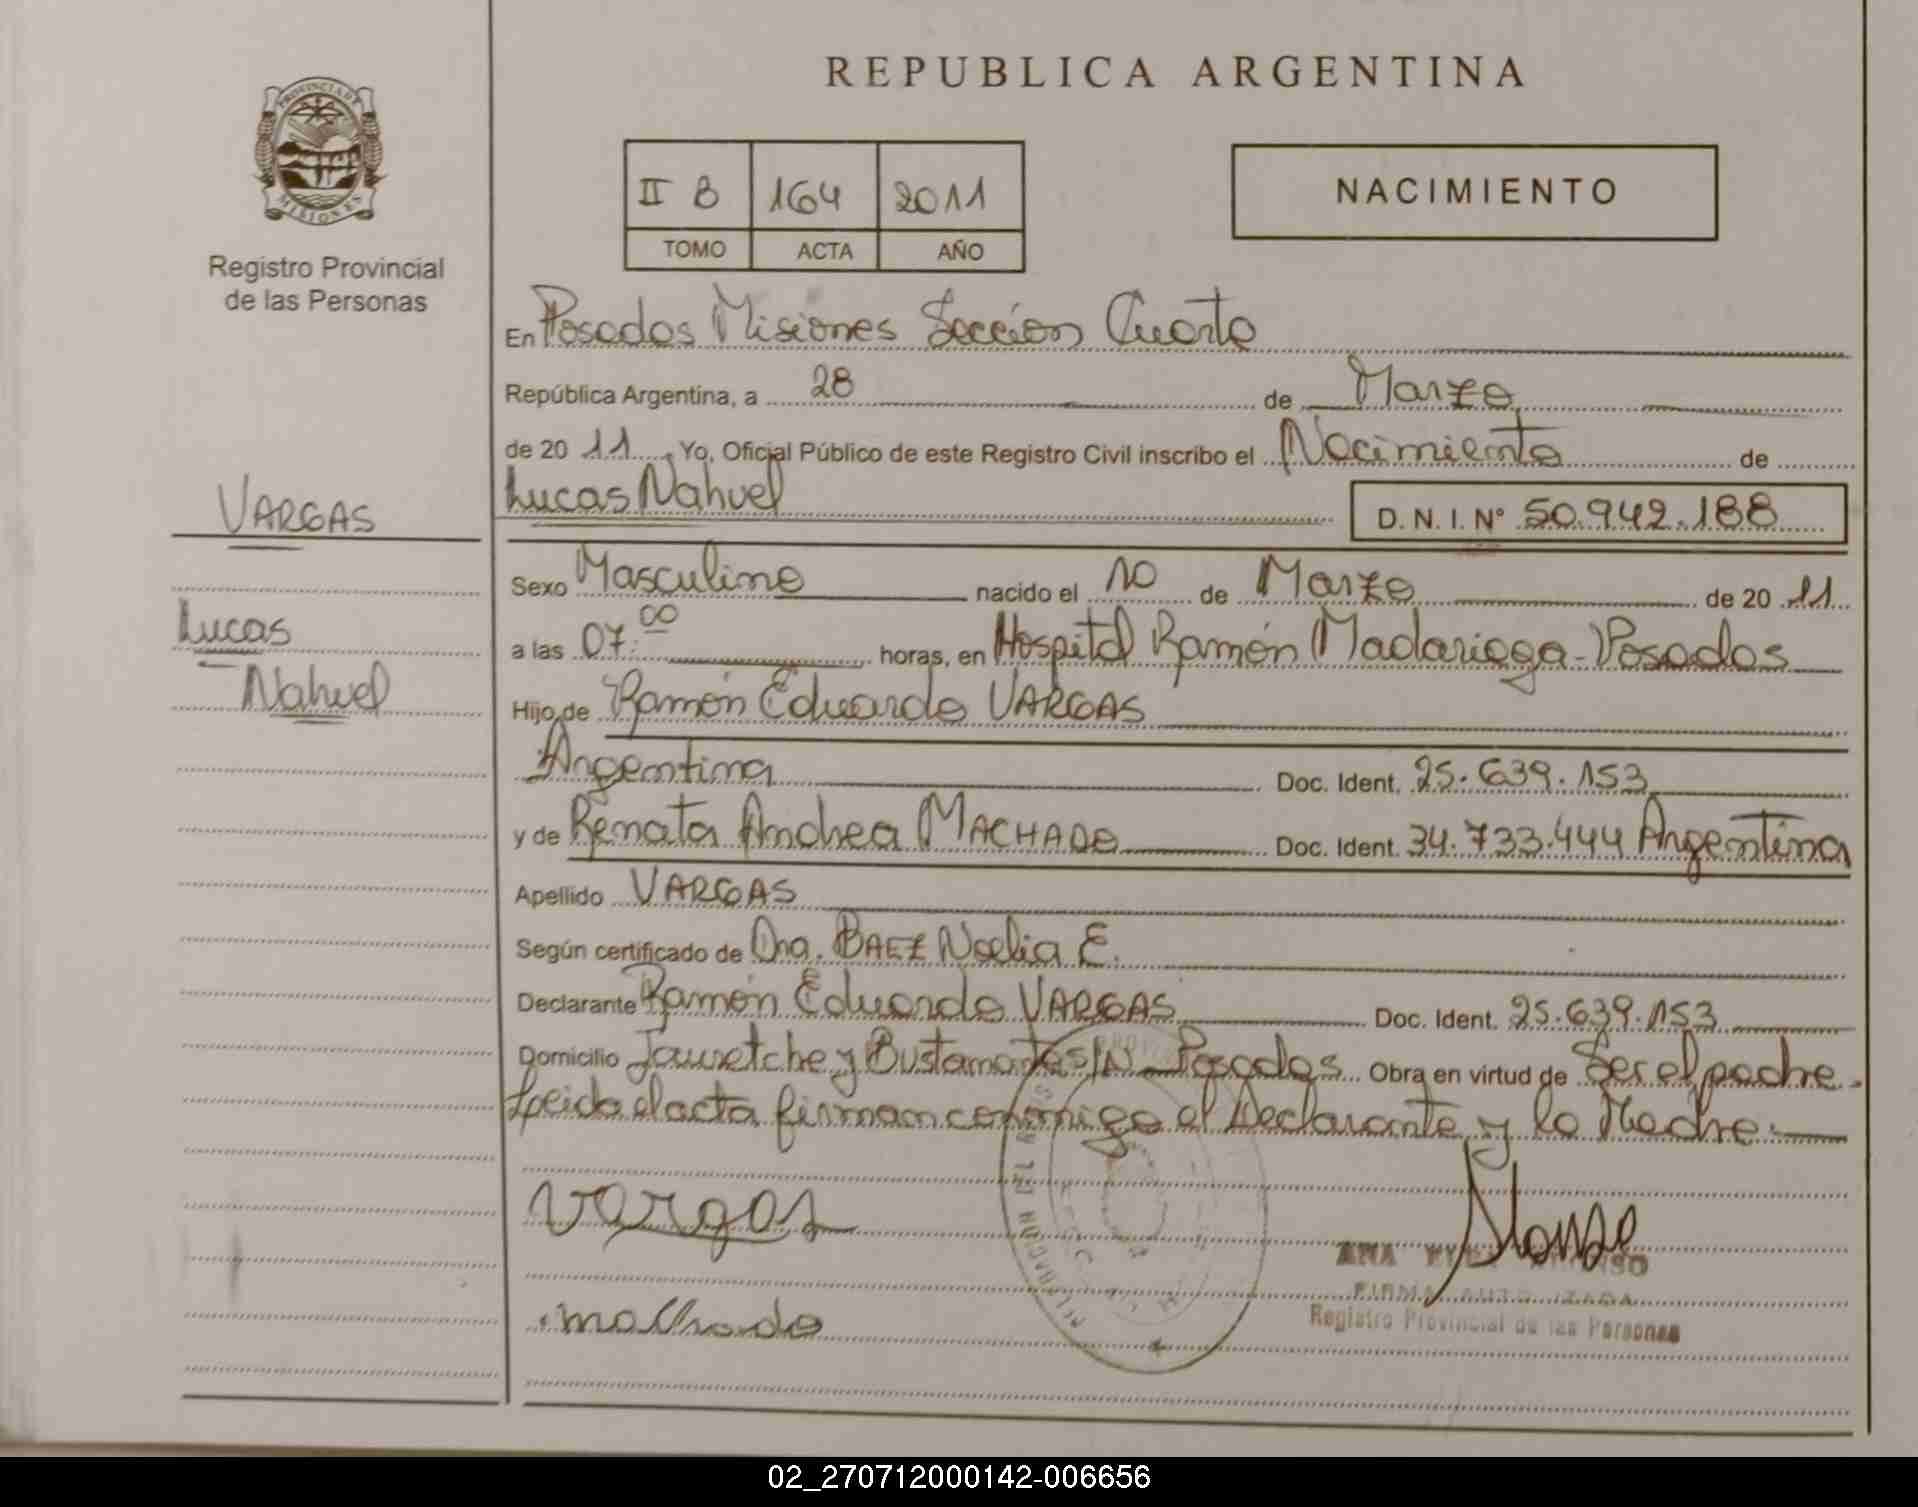 REPUBLICA ARGENTINA
PROVINCIA DE MISIONES
Registro Provincial
de las Personas
II B 164 2011
TOMO ACTA AÑO
NACIMIENTO
En Posadas Misiones Sección Cuarta
República Argentina, a 28 de Marzo
de 20 11 Yo, Oficial Público de este Registro Civil inscribo el Nacimiento de
Lucas Nahuel D. N. I. Nº 50.942.188
VARGAS
Lucas
Nahuel
Sexo Masculino nacido el 10 de Marzo de 20 11
a las 07:00 horas, en Hospital Ramón Madariaga - Posadas
Hijo de Ramón Eduardo VARGAS
Argentina Doc. Ident. 25.639.153
y de Renata Andrea MACHADO Doc. Ident. 34.733.444 Argentina
Apellido VARGAS
Según certificado de Dra. BAEZ Noelia E.
Declarante Ramón Eduardo VARGAS Doc. Ident. 25.639.153
Domicilio Jauretche y Bustamante S/N Posadas Obra en virtud de Ser el padre.
Leida el acta firman conmigo el Declarante y la Madre.
vargas
machado
ANA
FIRMA AUTORIZADA
Registro Provincial de las Personas
02_270712000142-006656